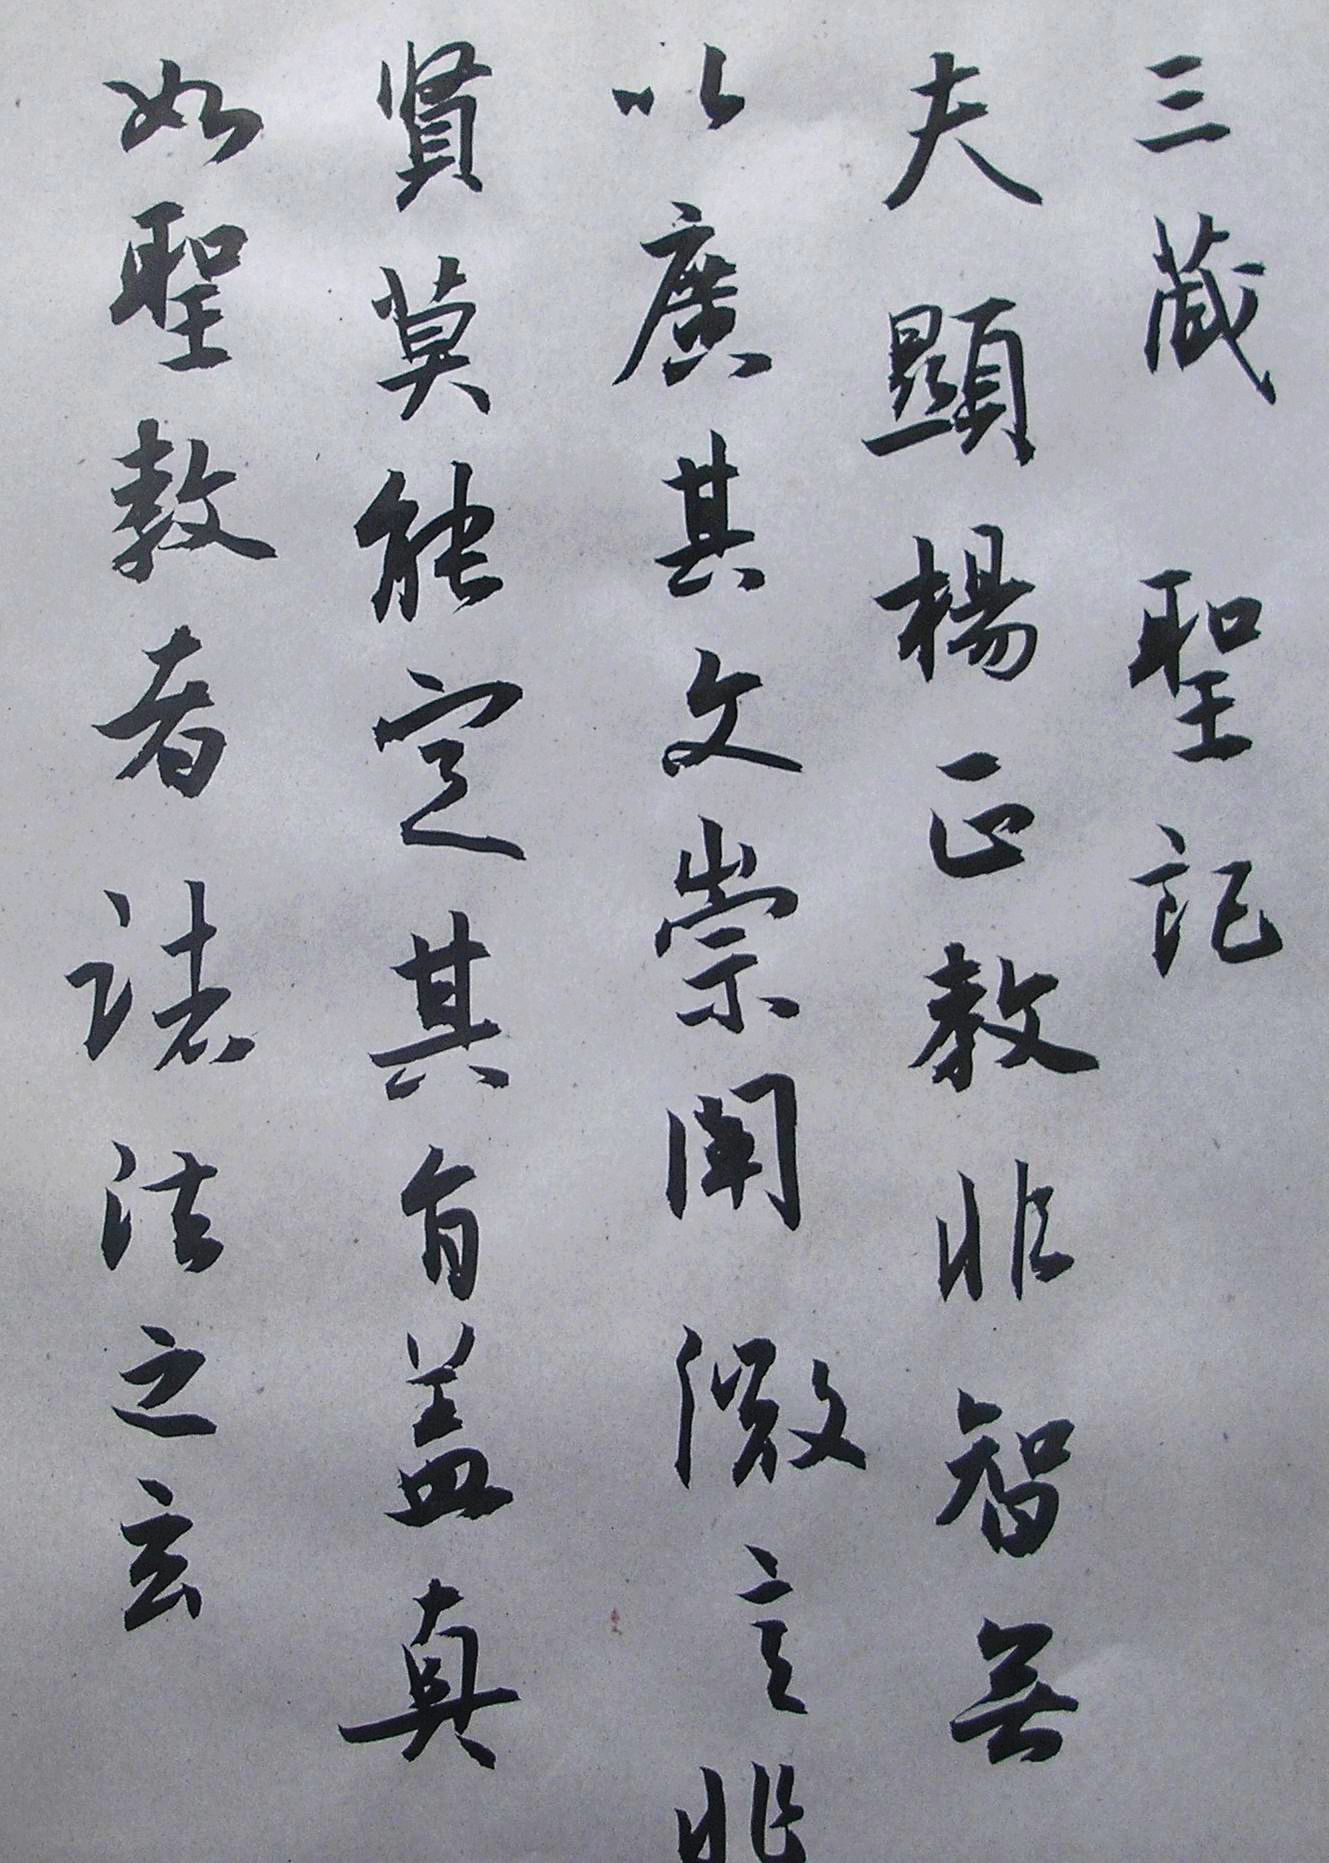 三藏聖記
夫顯楊正教非智無
以廣其文崇闡微言非
賢莫能定其旨蓋真
如聖教者諸法之玄